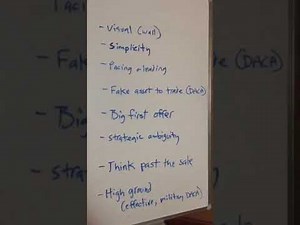 - Visual (wall)
- Simplicity
- Pacing & leading
- Fake asset to trade (DACA)
- Big first offer
- strategic ambiguity
- Think past the sale
- High ground
(effective, military, DACA)